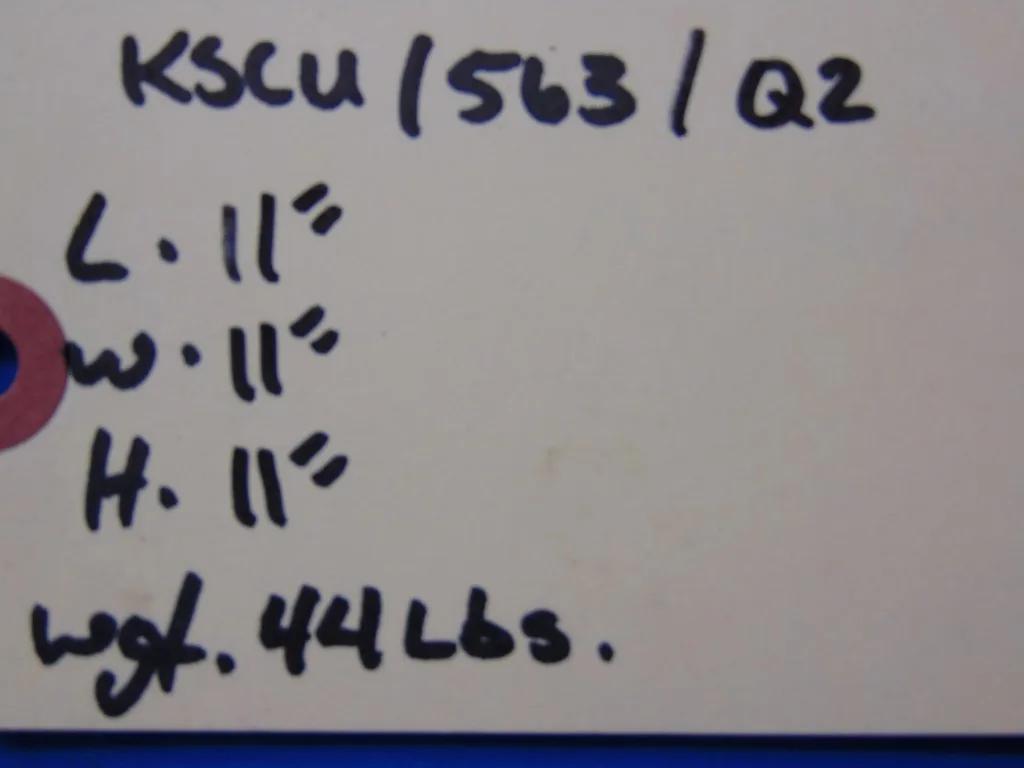 KSCU / 563 / Q2
L. 11"
W. 11"
H. 11"
wgt. 44 Lbs.